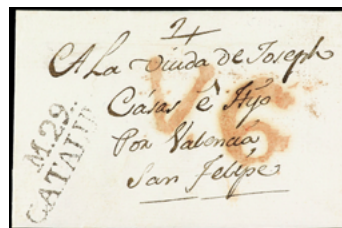 A La Viuda de Joseph
Casas è Hijo
Por Valencia
San Felipe
M.29.
CATALU